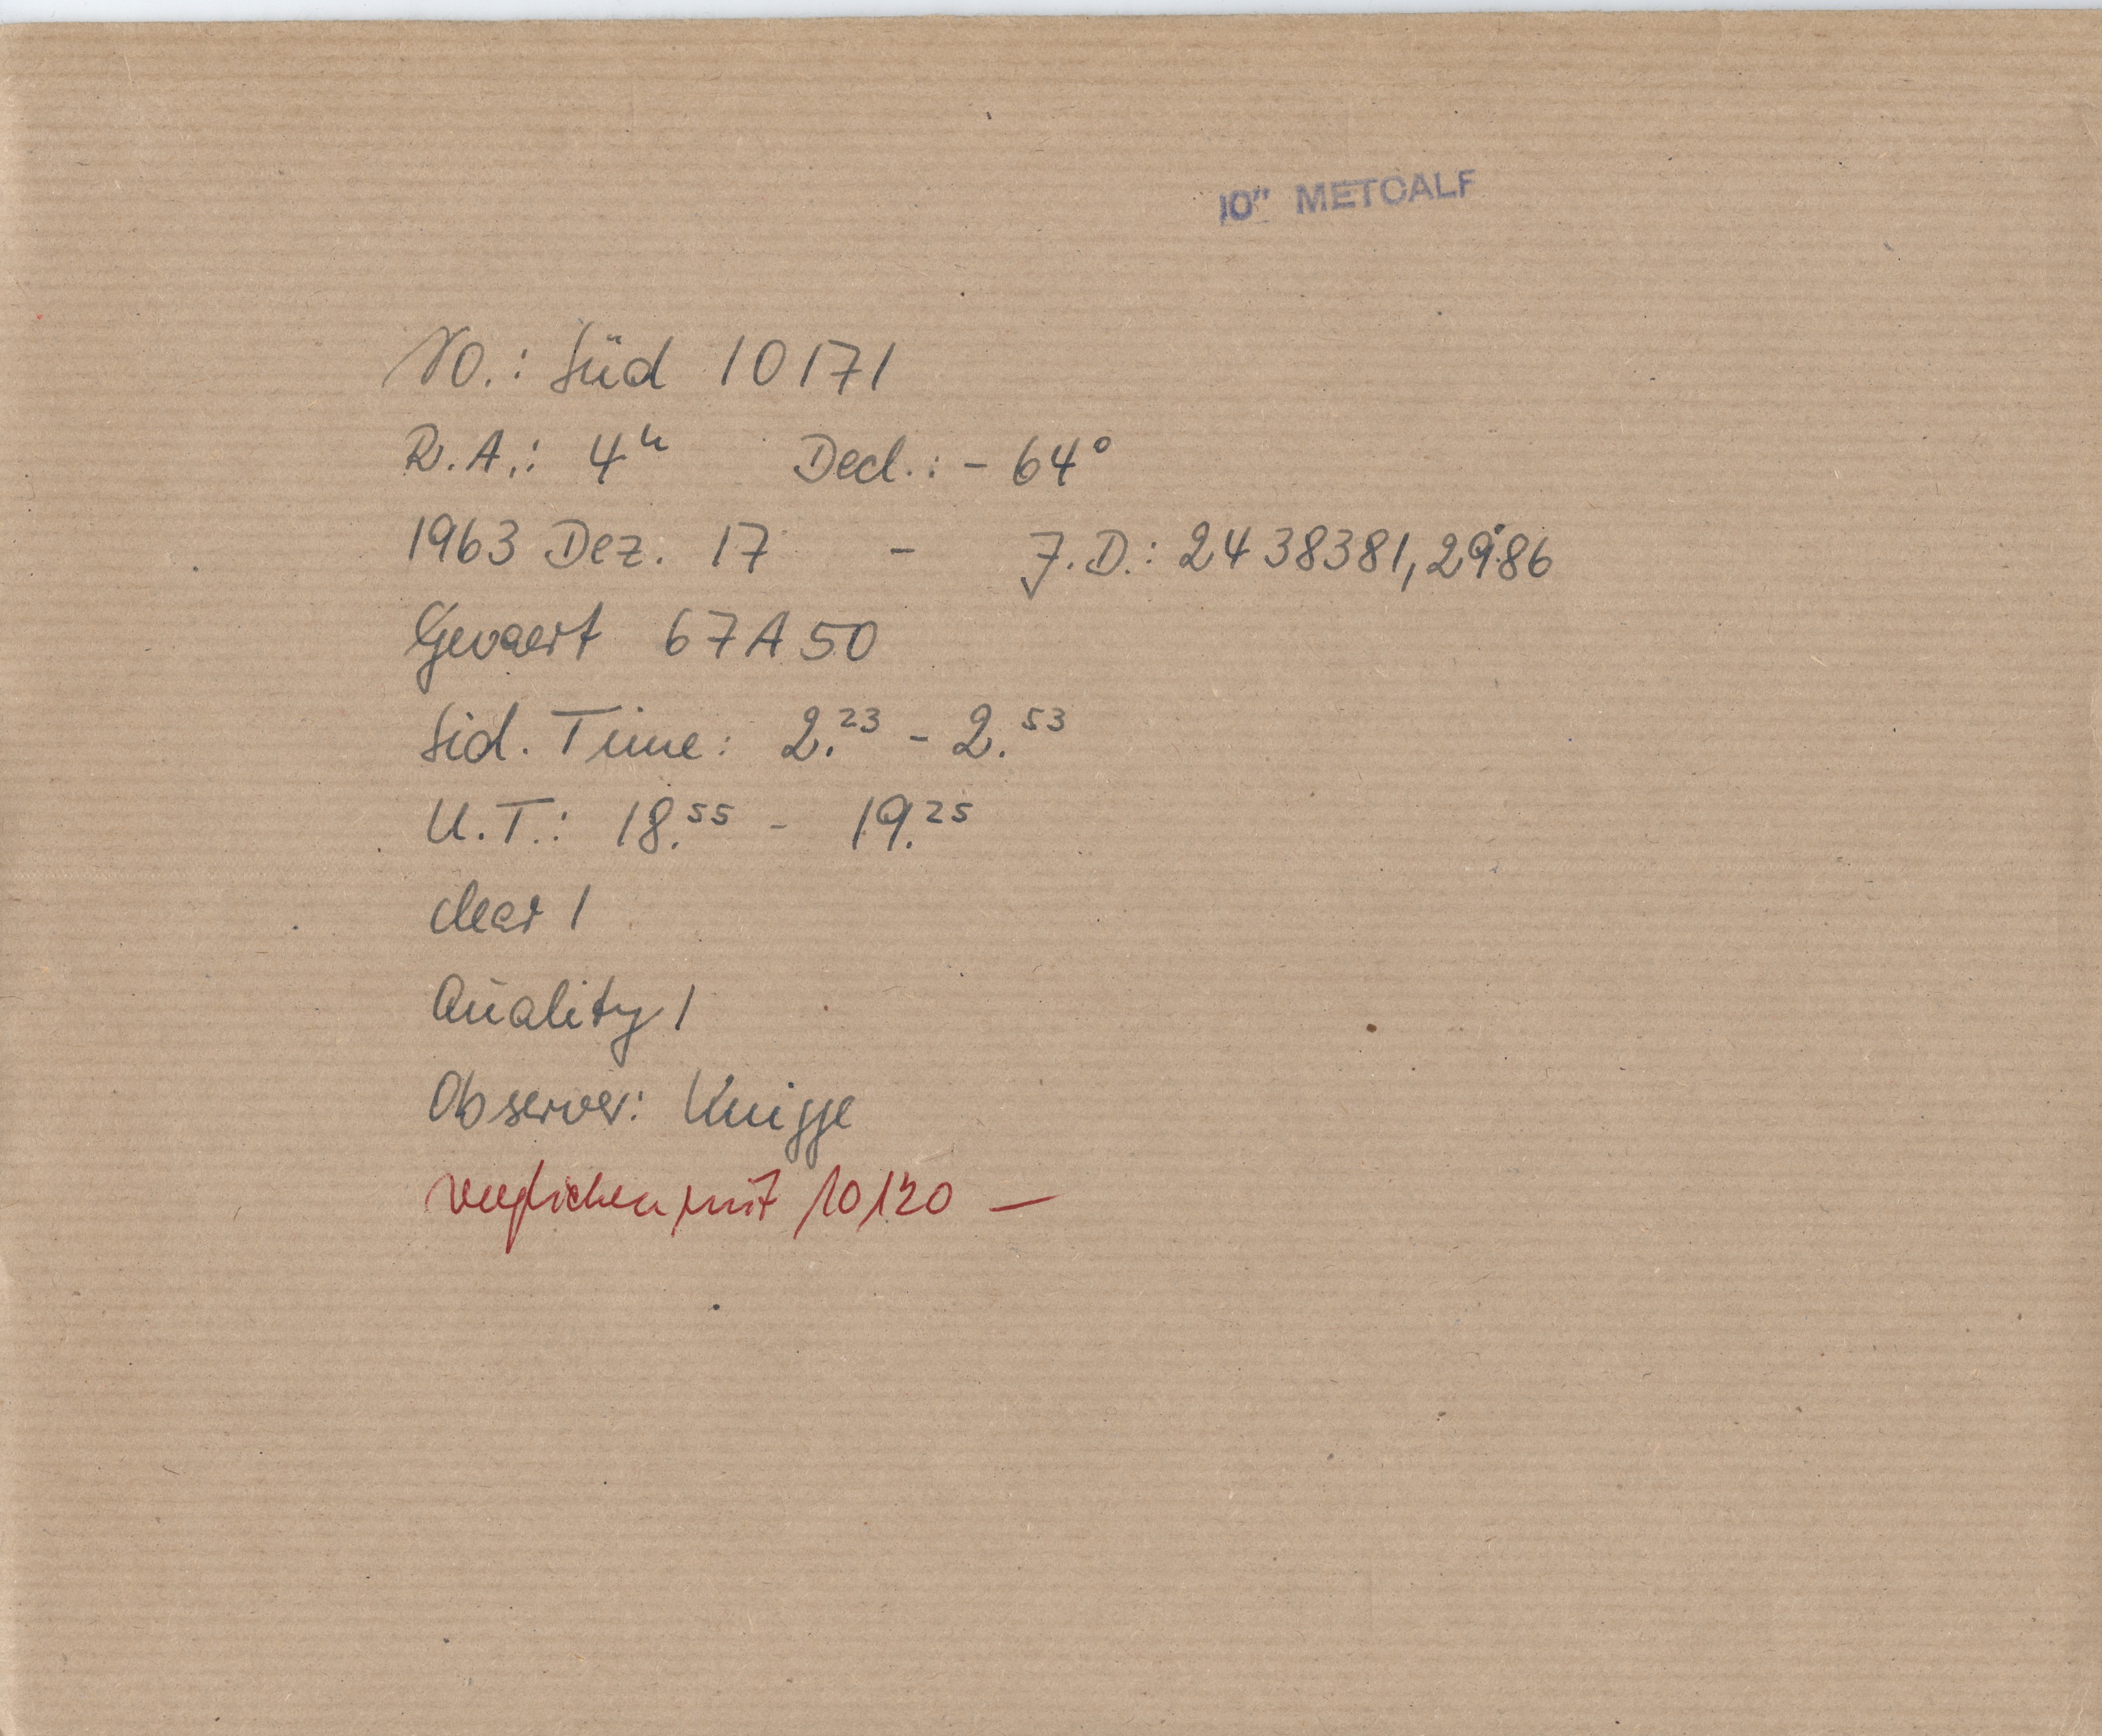 10" METCALF
No.: Süd 10171
R.A.: 4ʰ Decl.: - 64°
1963 Dez. 17 - J.D.: 2438381,2986
Gevaert 67A50
Sid. Time: 2.²³ - 2.⁵³
U.T.: 18.⁵⁵ - 19.²⁵
clear 1
Quality 1
Observer: Knigge
verglichen mit 10120 —